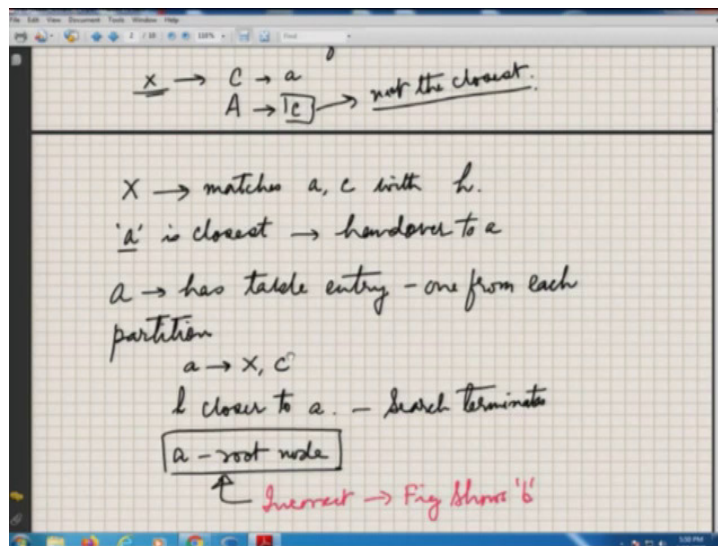 File Edit View Document Tools Window Help
2 / 10 Find
x → C → a
A → c → not the closest.
X → matches a, c with h.
'a' is closest → handover to a
a → has table entry - one from each
partition
a → X, c
h closer to a. - Search terminates
a - root node
Incorrect → Fig Shows 'b'